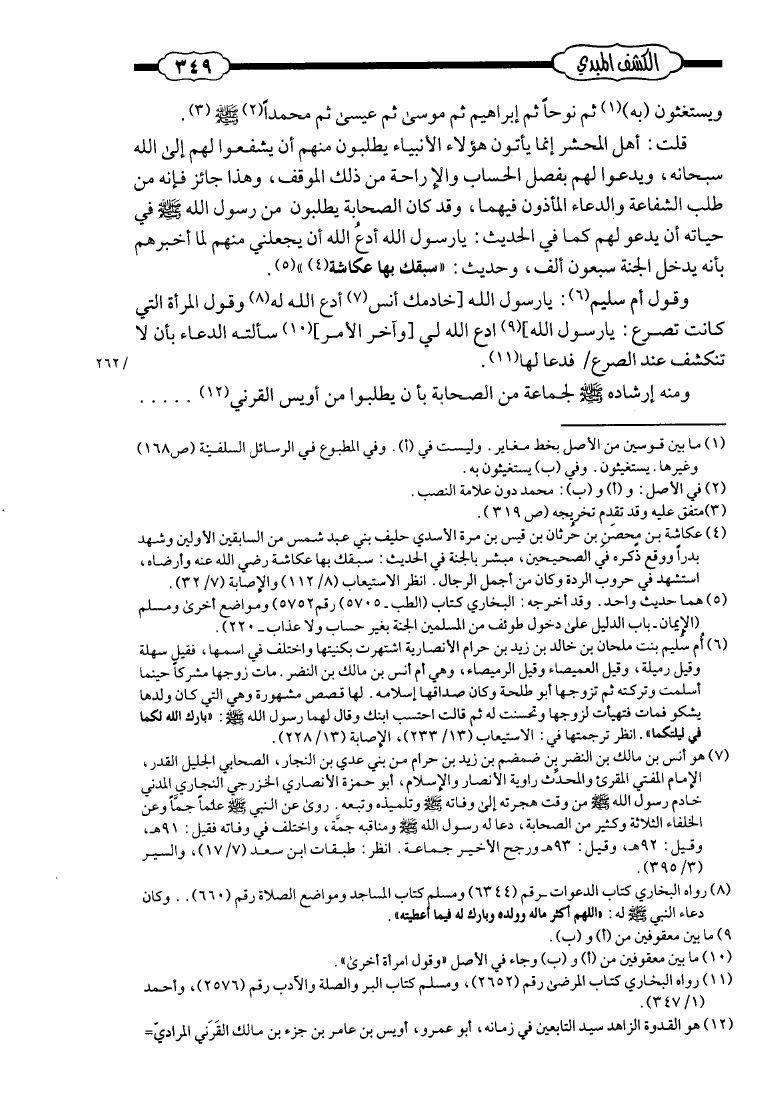 الكشف المبدي
٣٤٩
ويستغثون (به)(١) ثم نوحاً ثم إبراهيم ثم موسىٰ ثم عيسىٰ ثم محمداً(٢) ﷺ (٣).
قلت: أهل المحشر إنما يأتون هؤلاء الأنبياء يطلبون منهم أن يشفعوا لهم إلىٰ الله
سبحانه، ويدعوا لهم بفصل الحساب والإراحة من ذلك الموقف، وهذا جائز فإنه من
طلب الشفاعة والدعاء المأذون فيهما، وقد كان الصحابة يطلبون من رسول الله ﷺ في
حياته أن يدعو لهم كما في الحديث: يارسول الله أدعُ الله أن يجعلني منهم لما أخبرهم
بأنه يدخل الجنة سبعون ألف، وحديث: «سبقك بها عكاشة(٤) »(٥).
وقول أم سليم(٦): يارسول الله [خادمك أنس(٧) أدع الله له(٨) وقول المرأة التي
كانت تصرع: يارسول الله](٩) ادع الله لي [وآخر الأمر](١٠) سألته الدعاء بأن لا
تنكشف عند الصرع/ فدعا لها(١١).
/٢٦٢
ومنه إرشاده ﷺ لجماعة من الصحابة بأن يطلبوا من أويس القرني(١٢) . . . . .
(١) ما بين قوسين من الأصل بخط مغاير. وليست في (أ). وفي المطبوع في الرسائل السلفية (ص١٦٨)
وغيرها. يستغيثون. وفي (ب) يستغيثون به.
(٢) في الأصل: و (أ) و (ب): محمد دون علامة النصب.
(٣) متفق عليه وقد تقدم تخريجه (ص٣١٩).
(٤) عكاشة بن محصَن بن حُرثان بن قيس بن مرة الأسدي حليف بني عبد شمس من السابقين الأولين وشهد
بدراً ووقع ذكره في الصحيحين، مبشر بالجنة في الحديث: سبقك بها عكاشة رضي الله عنه وأرضاه،
استشهد في حروب الردة وكان من أجمل الرجال. انظر الاستيعاب (٨/١١٢) والإصابة (٧/٣٢).
(٥) هما حديث واحد. وقد أخرجه: البخاري كتاب (الطب-٥٧٠٥) رقم٥٧٥٢) ومواضع أخرىٰ ومسلم
(الإيمان-باب الدليل علىٰ دخول طوئف من المسلمين الجنة بغير حساب ولا عذاب-٢٢٠).
(٦) أم سليم بنت ملحان بن خالد بن زيد بن حرام الأنصارية اشتهرت بكنيتها واختلف في اسمها، فقيل سهلة
وقيل رميلة، وقيل العميصاء وقيل الرميصاء، وهي أم أنس بن مالك بن النضر. مات زوجها مشركاً حينما
أسلمت وتركته ثم تزوجها أبو طلحة وكان صداقها إسلامه. لها قصص مشهورة وهي التي كان ولدها
يشكو فمات فتهيأت لزوجها وتحسنت له ثم قالت احتسب ابنك وقال لهما رسول الله ﷺ: «بارك الله لكما
في ليلتكما». انظر ترجمتها في: الاستيعاب (١٣/٢٣٣)، الإصابة (١٣/٢٢٨).
(٧) هو أنس بن مالك بن النضر بن ضمضم بن زيد بن حرام من بني عدي بن النجار، الصحابي الجليل القدر،
الإمام المفتي المقرئ والمحدِّث راوية الأنصار والإسلام، أبو حمزة الأنصاري الخزرجي النجاري المدني
خادم رسول الله ﷺ من وقت هجرته إلىٰ وفاته ﷺ وتلميذه وتبعه. روىٰ عن النبي ﷺ علماً جمَّاً وعن
الخلفاء الثلاثة وكثير من الصحابة، دعا له رسول الله ﷺ ومناقبه جمَّة، واختلف في وفاته فقيل: ٩١هـ،
وقيل: ٩٢هـ، وقيل: ٩٣هـ ورجح الأخير جماعة. انظر: طبقات ابن سعد (٧/١٧)، والسير
(٣/٣٩٥).
(٨) رواه البخاري كتاب الدعوات -رقم (٦٣٤٤) ومسلم كتاب المساجد ومواضع الصلاة رقم (٦٦٠).. وكان
دعاء النبي ﷺ له: «اللهم أكثر ماله وولده وبارك له فيما أعطيته».
٩) ما بين معقوفين من (أ) و (ب).
(١٠) ما بين معقوفين من (أ) و (ب) وجاء في الأصل «وقول امرأة أخرىٰ».
(١١) رواه البخاري كتاب المرضىٰ رقم (٢٦٥٢)، ومسلم كتاب البر والصلة والآدب رقم (٢٥٧٦)، وأحمد
(١/٣٤٧).
(١٢) هو القدوة الزاهد سيد التابعين في زمانه، أبو عمرو، أويس بن عامر بن جزء بن مالك القَرَني المراديّ=